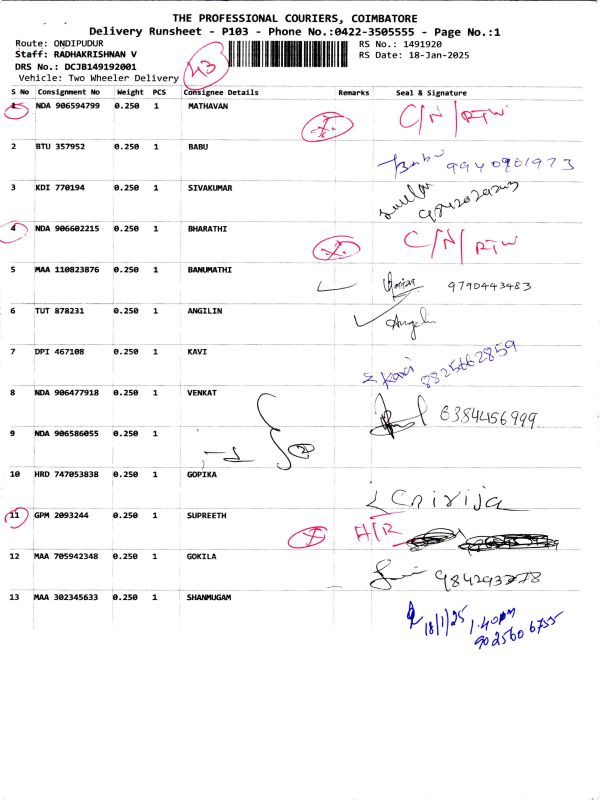 THE PROFESSIONAL COURIERS, COIMBATORE
Delivery Runsheet - P103 - Phone No.:0422-3505555 - Page No.:1
Route: ONDIPUDUR RS No.: 1491920
Staff: RADHAKRISHNAN V RS Date: 18-Jan-2025
DRS No.: DCJB149192001
43
Vehicle: Two Wheeler Delivery
S No Consignment No Weight PCS Consignee Details Remarks Seal & Signature
1 NDA 906594799 0.250 1 MATHAVAN X C/N/RTW
2 BTU 357952 0.250 1 BABU Babu 9940901973
3 KDI 770194 0.250 1 SIVAKUMAR
4 NDA 906602215 0.250 1 BHARATHI X C/N/RTW
5 MAA 110823876 0.250 1 BANUMATHI 9790443483
6 TUT 878231 0.250 1 ANGILIN Angeli
7 DPI 467108 0.250 1 KAVI Kavi 8825662859
8 NDA 906477918 0.250 1 VENKAT 6384456999
9 NDA 906586055 0.250 1 2
10 HRD 747053838 0.250 1 GOPIKA Girija
11 GPM 2093244 0.250 1 SUPREETH X A/R
12 MAA 705942348 0.250 1 GOKILA
13 MAA 302345633 0.250 1 SHANMUGAM 18/1/25 1.40pm
902560 6755